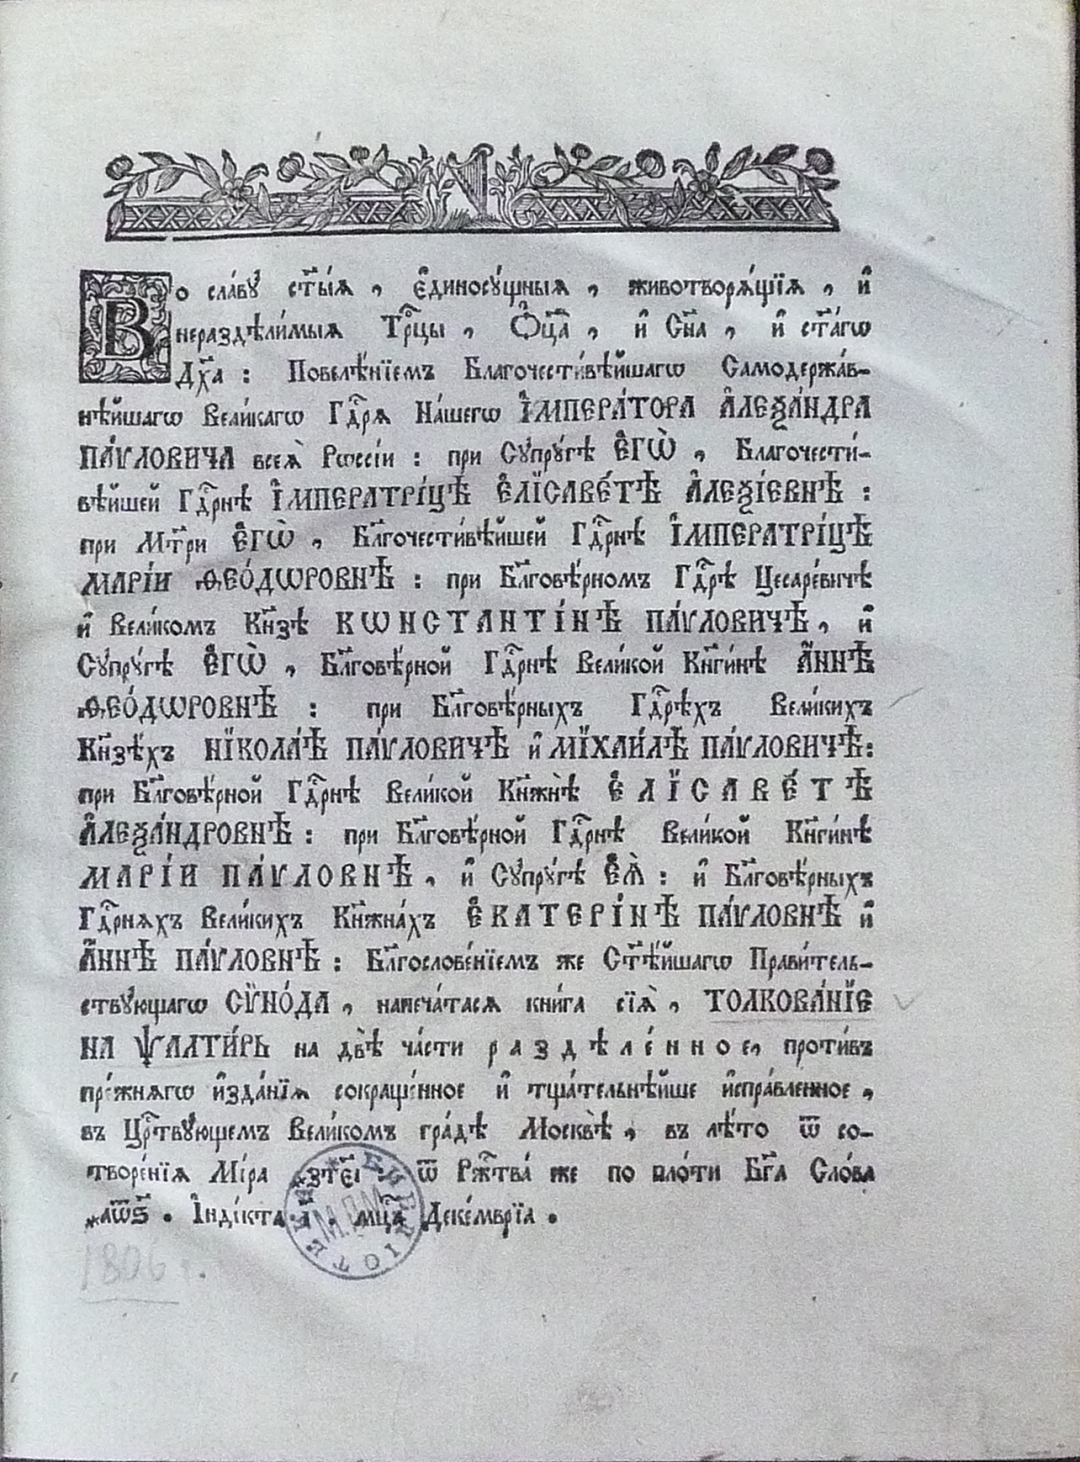 Во сла́вꙋ ст҃ы́ѧ, є҆диносꙋ́щныѧ, животворѧ́щїѧ, и҆
нераздѣли́мыѧ Трⷪ҇цы, Ѻ҆ц҃а̀, и҆ Сн҃а, и҆ ст҃а́гѡ
Дх҃а: Повелѣ́нїемъ Благочести́вѣйшагѡ Самодержа́в-
нѣйшагѡ Вели́кагѡ Гдⷭ҇рѧ На́шегѡ І҆МПЕРА́ТОРА А҆ЛЕѮА́НДРА
ПА́ѴЛОВИЧА всеѧ̀ Рѡссі́и: при Сꙋпрꙋ́гѣ Є҆ГѠ̀, Благочести́-
вѣйшей Гдⷭ҇рнѣ І҆МПЕРАТРІ́ЦѢ Є҆ЛІСАВЕ́ТѢ А҆ЛЕѮІ́ЕВНѢ:
при Мт҃ри Є҆ГѠ̀, Бл҃гочести́вѣйшей Гдⷭ҇рнѣ І҆МПЕРАТРІ́ЦѢ
МАРІ́И ѲЕО́ДѠРОВНѢ: при Бл҃говѣ́рномъ Гдⷭ҇рѣ Цесаре́вичѣ
и҆ Вели́комъ Кн҃зѣ КѠНСТАНТІ́НѢ ПА́ѴЛОВИЧѢ, и҆
Сꙋпрꙋ́гѣ Є҆ГѠ̀, Бл҃говѣ́рной Гдⷭ҇рнѣ Вели́кой Кн҃ги́нѣ А҆́ННѢ
ѲЕО́ДѠРОВНѢ: при Бл҃говѣ́рныхъ Гдⷭ҇рѣхъ Вели́кихъ
Кн҃зѣ́хъ НІКОЛА́Ѣ ПА́ѴЛОВИЧѢ и҆ МІХАИ́ЛѢ ПА́ѴЛОВИЧѢ:
при Бл҃говѣ́рной Гдⷭ҇рнѣ Вели́кой Кн҃жнѣ̀ Є҆ЛІСАВЕ́ТѢ
А҆ЛЕѮА́НДРОВНѢ: при Бл҃говѣ́рной Гдⷭ҇рнѣ Вели́кой Кн҃ги́нѣ
МАРІ́И ПА́ѴЛОВНѢ, и҆ Сꙋпрꙋ́гѣ Є҆Ѧ̀: и҆ Бл҃говѣ́рныхъ
Гдⷭ҇рнѧхъ Вели́кихъ Кн҃жна́хъ Є҆КАТЕРІ́НѢ ПА́ѴЛОВНѢ и҆
А҆́ННѢ ПА́ѴЛОВНѢ: Бл҃гослове́нїемъ же Ст҃ѣ́йшагѡ Прави́тель-
ствꙋющагѡ СѴНО́ДА, напеча́тасѧ кни́га сїѧ̀, ТОЛКОВА́НЇЕ
НА ѰАЛТИ́РЬ на двѣ̀ ча́сти раздѣле́нное, проти́въ
пре́жнѧгѡ и҆зда́нїѧ сокраще́нное и҆ тща́тельнѣйше и҆спра́вленное,
въ Црⷭ҇твꙋющемъ Вели́комъ гра́дѣ Москвѣ̀, въ лѣ́то ѿ со-
творе́нїѧ Мі́ра ҂зтє҃і. ѿ Ржⷭ҇тва́ же по пло́ти Бг҃а Сло́ва
҂аѿѕ҃. І҆нді́кта і҃. мцⷭ҇а Деке́мврїа.
1806 г.
БИБЛІОТЕКА
М.Д.М.